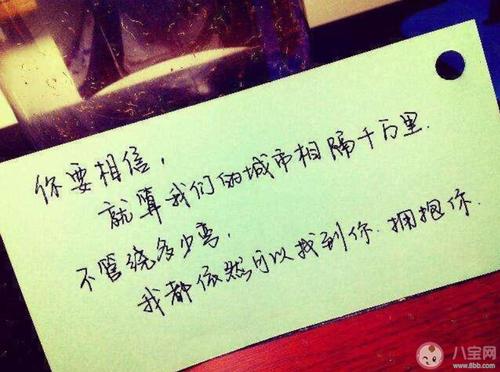 你要相信,
就算我们的城市相隔十万里.
不管绕多少弯,
我都依然可以找到你.拥抱你.
八宝网
www.8bb.com